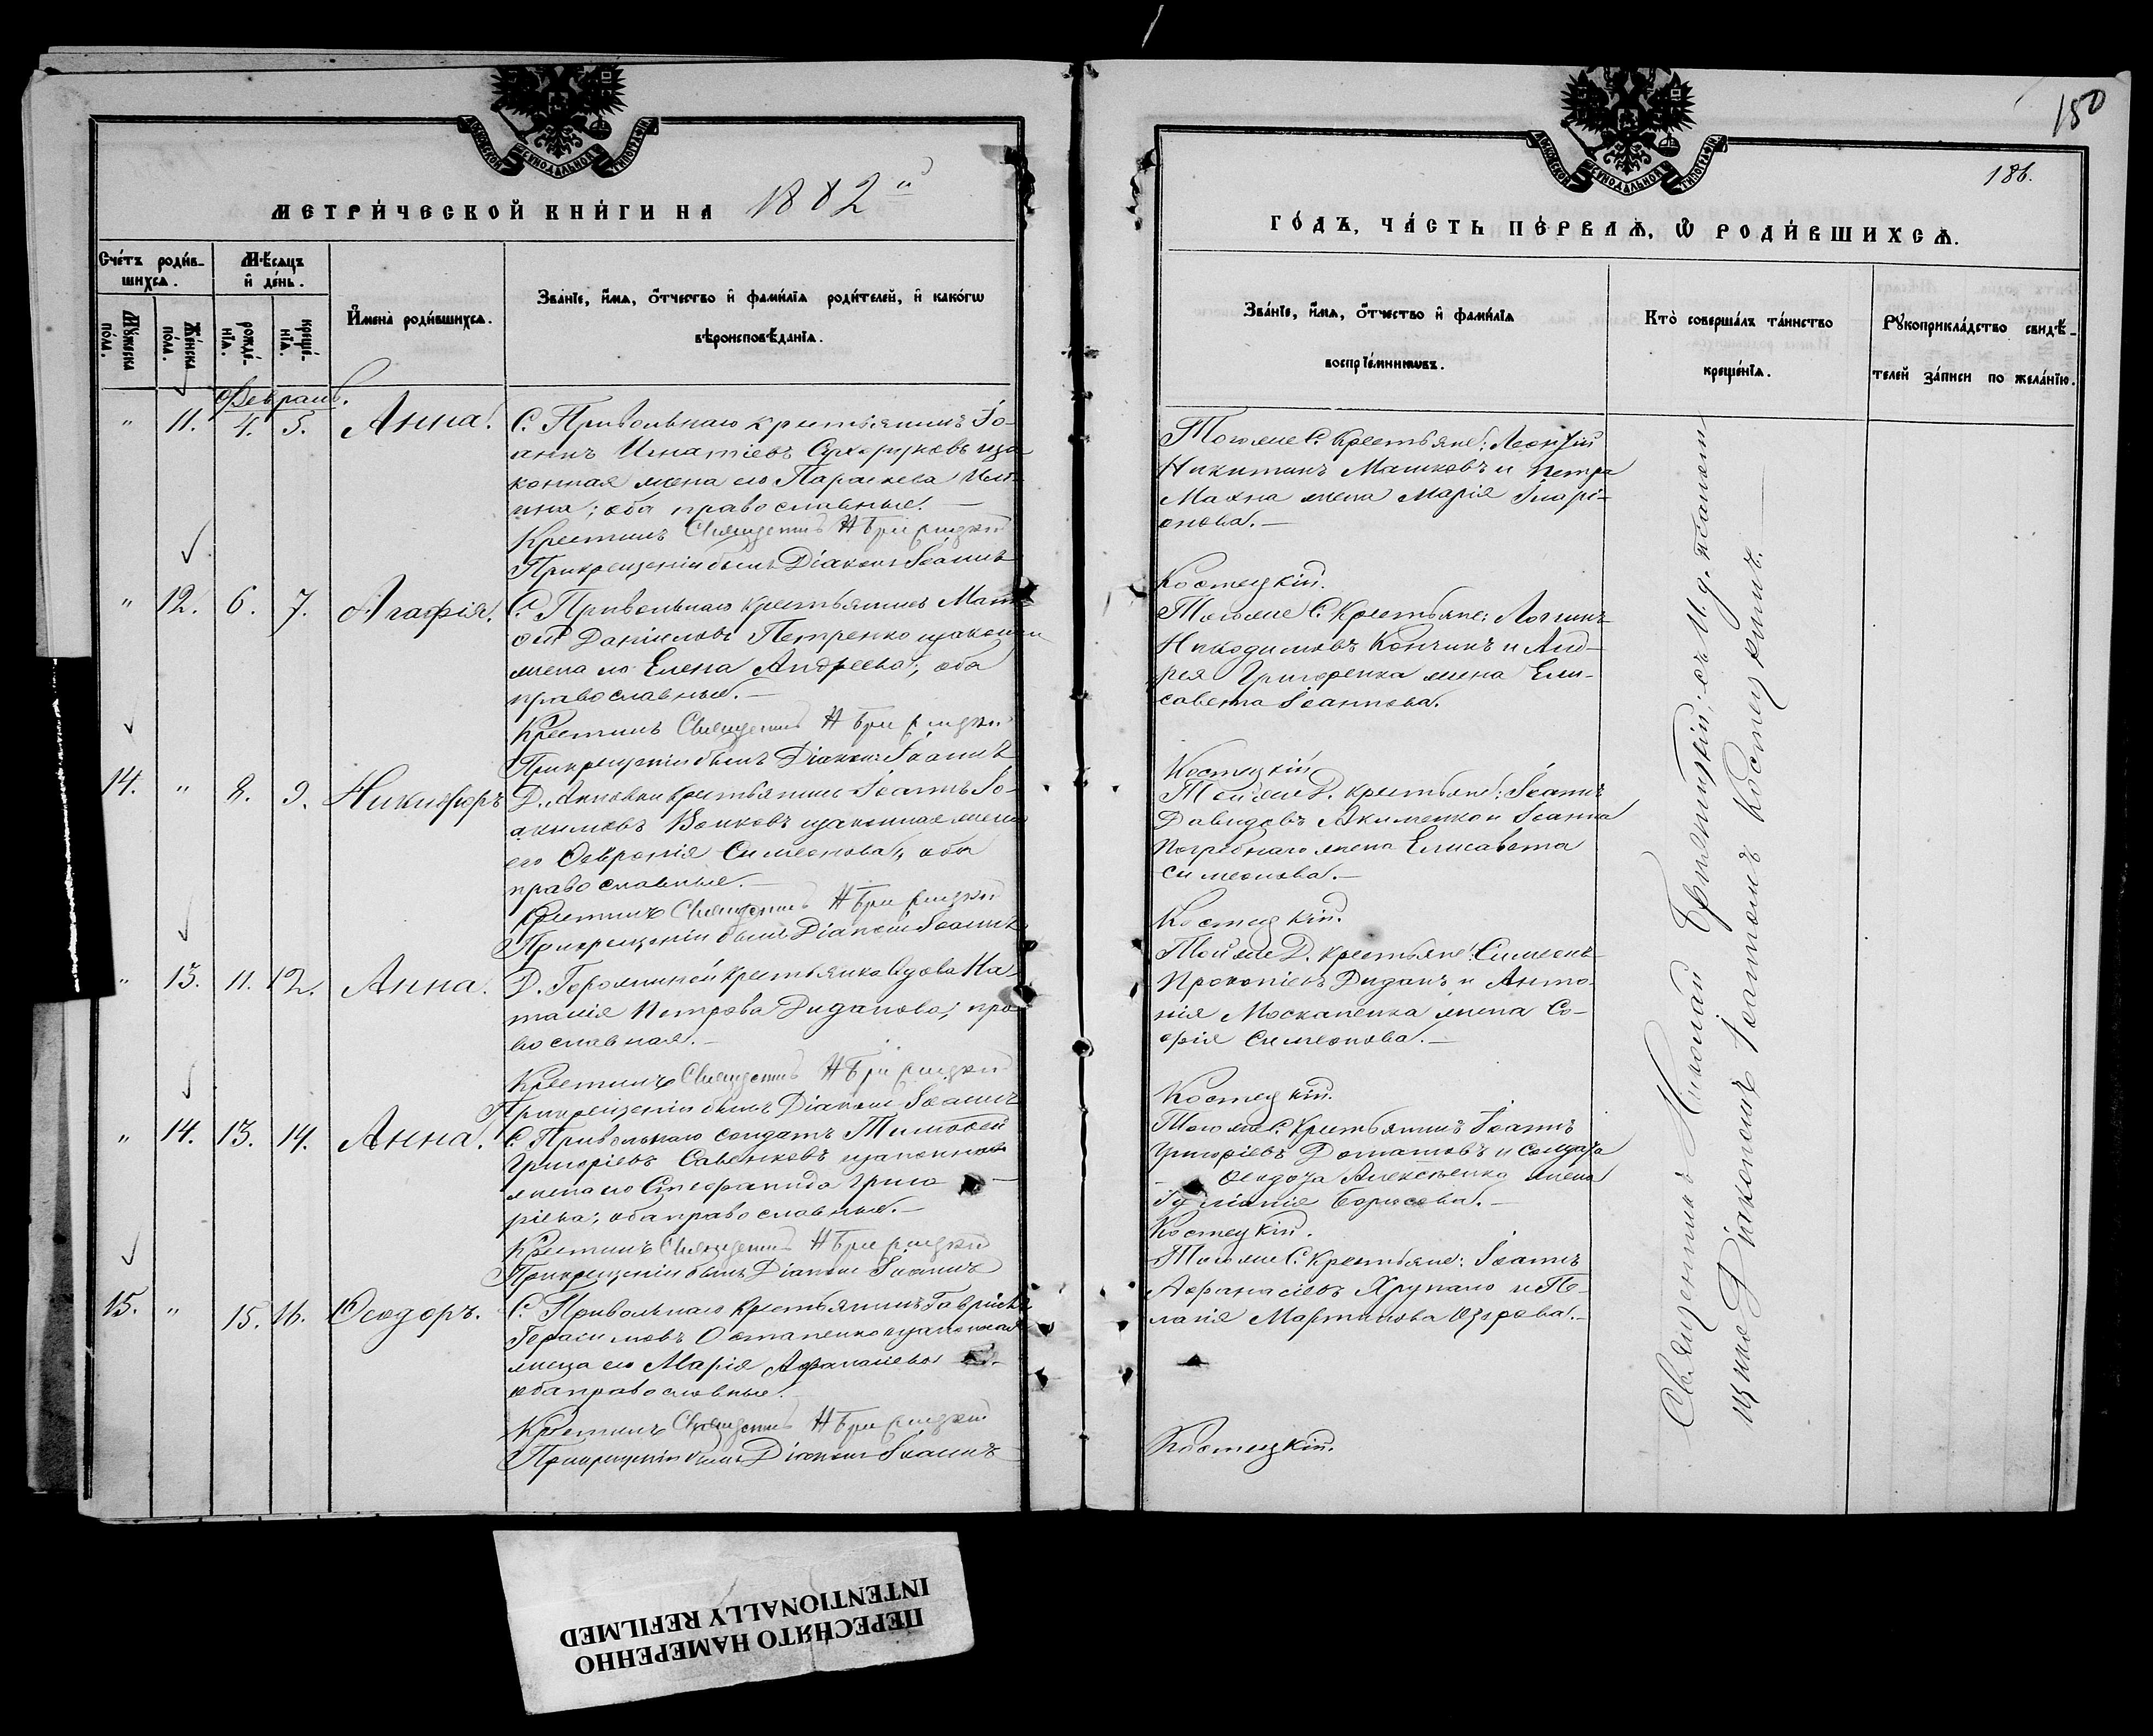 150
186.
МОСКОВСКОЙ СѴНОДАЛЬНОЙ ТИПОГРАФІИ
МЕТРИ́ЧЕСКОЙ КНИ́ГИ НА 1882 й
Сче́тъ роди́в-
шихсѧ.
Мѣ́сѧцъ
и҆ де́нь.
Мꙋ́жеска
по́ла.
Же́нска
по́ла.
рожде́-
нїѧ.
креще́-
нїѧ.
И҆мена̀ роди́вшихсѧ.
Зва́нїе, и҆́мѧ, ѻ҆́тчество и҆ фами́лїѧ роди́телей, и҆ како́гѡ
вѣроисповѣ́данїѧ.
Феврапль.
" 11. 4. 5. Анна.
С. Привольнаго крестьянинъ Іо-
аннъ Игнатіевъ
конная жена его Параскева
оба православные.
Крестилъ Священникъ Н
При крещеніи былъ Діаконъ Іоаннъ
" 12. 6. 7. Агафія.
С. Привольнаго крестьянинъ
Даніиловъ Петренко
жена его Елена Андреева; оба
православные.
Крестилъ Священникъ Н
При крещеніи былъ Діаконъ Іоаннъ
14. " 8. 9. Никифоръ
Д. крестьянинъ Іоаннъ Іо-
акимовъ Волковъ
его Февронія Симеонова, оба
православные.
Крестилъ Священникъ Н
При крещеніи былъ Діаконъ Іоаннъ
" 13. 11. 12. Анна.
Д. крестьянка вдова На-
талія Петрова Диданова; пра-
вославная.
Крестилъ Священникъ Н
При крещеніи былъ Діаконъ Іоаннъ
" 14. 13. 14. Анна.
С. Привольнаго солдатъ Тимофей
Григоріевъ Савенковъ
жена его Стефанида Григо-
ріева; оба православные.
Крестилъ Священникъ Н
При крещеніи былъ Діаконъ Іоаннъ
15. " 15. 16. Ѳеодоръ.
С. Привольнаго крестьянинъ Гавріилъ
Герасимовъ Остапенко
жена его Марія Афанасіева
оба православные.
Крестилъ Священникъ Н
При крещеніи былъ Діаконъ Іоаннъ
МОСКОВСКОЙ СѴНОДАЛЬНОЙ ТИПОГРАФІИ
ГО́ДЪ, ЧА́СТЬ ПЕ́РВАѦ, Ѽ РОДИ́ВШИХСѦ.
Зва́нїе, и҆́мѧ, ѻ҆́тчество и҆ фами́лїѧ
воспрїе́мникѡвъ.
Кто̀ соверша́лъ та́инство
креще́нїѧ.
Рꙋкоприкла́дство свидѣ́-
телей за́писи по жела́нїю.
Тогоже С. Крестьяне: Леонтій
Никитинъ Машковъ и Петра
Махна жена Марія Иларі-
онова.
Костецкій.
Тогоже С. Крестьяне: Логинъ
Никодимовъ Кончинъ и Анд-
рея Григоренка жена Ели-
савета Іоаннова.
Костецкій
Тойже Д. крестьяне: Іоаннъ
Давидовъ Акименко и Іоанна
Погребнаго жена Елисавета
Симеонова.
Костецкій.
Тойже Д. крестьяне: Симеонъ
Прокопіевъ Диданъ и Анто-
нія Москаленка жена Со-
фія Симеонова.
Костецкій.
Тогоже С. Крестьянинъ Іоаннъ
Григоріевъ Долматовъ и солдата
Ѳеодота Алексѣенко жена
Іуліанія Борисова.
Костецкій.
Тогоже С. Крестьяне: Іоаннъ
Афанасіевъ Хрупало и Пе-
лагія Мартинова
Костецкій.
Священникъ Николай съ И. д. псалом-
щика Діакономъ Іоанномъ Костецкимъ.
ПЕРЕСНЯТО НАМЕРЕННО
INTENTIONALLY REFILMED